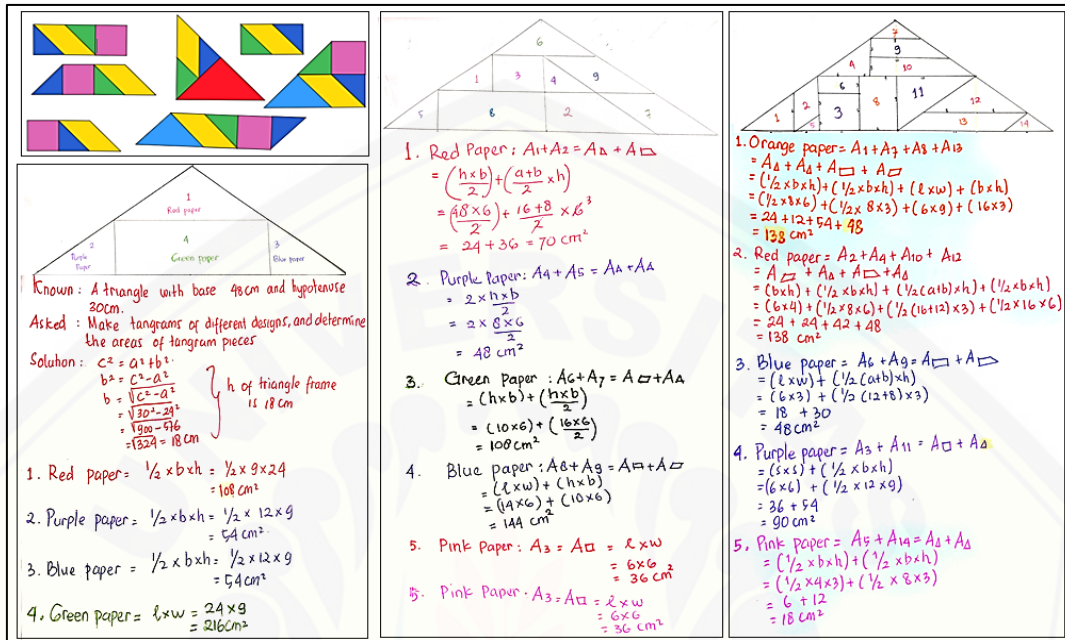 1
Red paper
2
Purple
Paper
4
Green paper
3
Blue paper
Known : A triangle with base 48cm and hypotenuse
30cm.
Asked : Make tangrams of different designs, and determine
the areas of tangram pieces
Solution : c² = a²+b²
b² = c²-a²
b = √c²-a²
= √30²-24²
= √900-576
= √324 = 18 cm
h of triangle frame
is 18 cm
1. Red paper = ½ x b x h = ½ x 9 x 24
= 108 cm²
2. Purple paper = ½ x b x h = ½ x 12 x 9
= 54 cm²
3. Blue paper = ½ x b x h = ½ x 12 x 9
= 54 cm²
4. Green paper = l x w = 24 x 9
= 216 cm²
6
1
3
4
9
5
8
2
7
1. Red Paper : A1 + A2 = A△ + A⏢
= (h x b / 2) + (a+b / 2 x h)
= (48 x 6 / 2) + 16+8 / 2 x 6 3
= 24 + 36 = 70 cm²
2. Purple Paper : A4 + A5 = A△ + A△
= 2 x h x b / 2
= 2 x 8 x 6 / 2
= 48 cm²
3. Green paper : A6 + A7 = A▱ + A△
= (h x b) + (h x b / 2)
= (10 x 6) + (16 x 6 / 2)
= 108 cm²
4. Blue paper : A8 + A9 = A▭ + A▱
= (l x w) + (h x b)
= (14 x 6) + (10 x 6)
= 144 cm²
5. Pink Paper : A3 = A□ = l x w
= 6 x 6
= 36 cm²
5. Pink Paper . A3 = A□ = l x w
= 6 x 6
= 36 cm²
7
9
4
10
6
11
2
3
8
12
1
5
13
14
1. Orange paper = A1 + A7 + A8 + A13
= A△ + A△ + A▭ + A▱
= (½ x b x h) + (½ x b x h) + (l x w) + (b x h)
= (½ x 8 x 6) + (½ x 8 x 3) + (6 x 9) + (16 x 3)
= 24 + 12 + 54 + 48
= 138 cm²
2. Red paper = A2 + A4 + A10 + A12
= A▱ + A△ + A⏢ + A△
= (b x h) + (½ x b x h) + (½ (a+b) x h) + (½ x b x h)
= (6 x 4) + (½ x 8 x 6) + (½ (16+12) x 3) + (½ x 16 x 6)
= 24 + 24 + 42 + 48
= 138 cm²
3. Blue paper = A6 + A9 = A▭ + A⏢
= (l x w) + (½ (a+b) x h)
= (6 x 3) + (½ (12+8) x 3)
= 18 + 30
= 48 cm²
4. Purple paper = A3 + A11 = A□ + A△
= (s x s) + (½ x b x h)
= (6 x 6) + (½ x 12 x 9)
= 36 + 54
= 90 cm²
5. Pink paper = A5 + A14 = A△ + A△
= (½ x b x h) + (½ x b x h)
= (½ x 4 x 3) + (½ x 8 x 3)
= 6 + 12
= 18 cm²